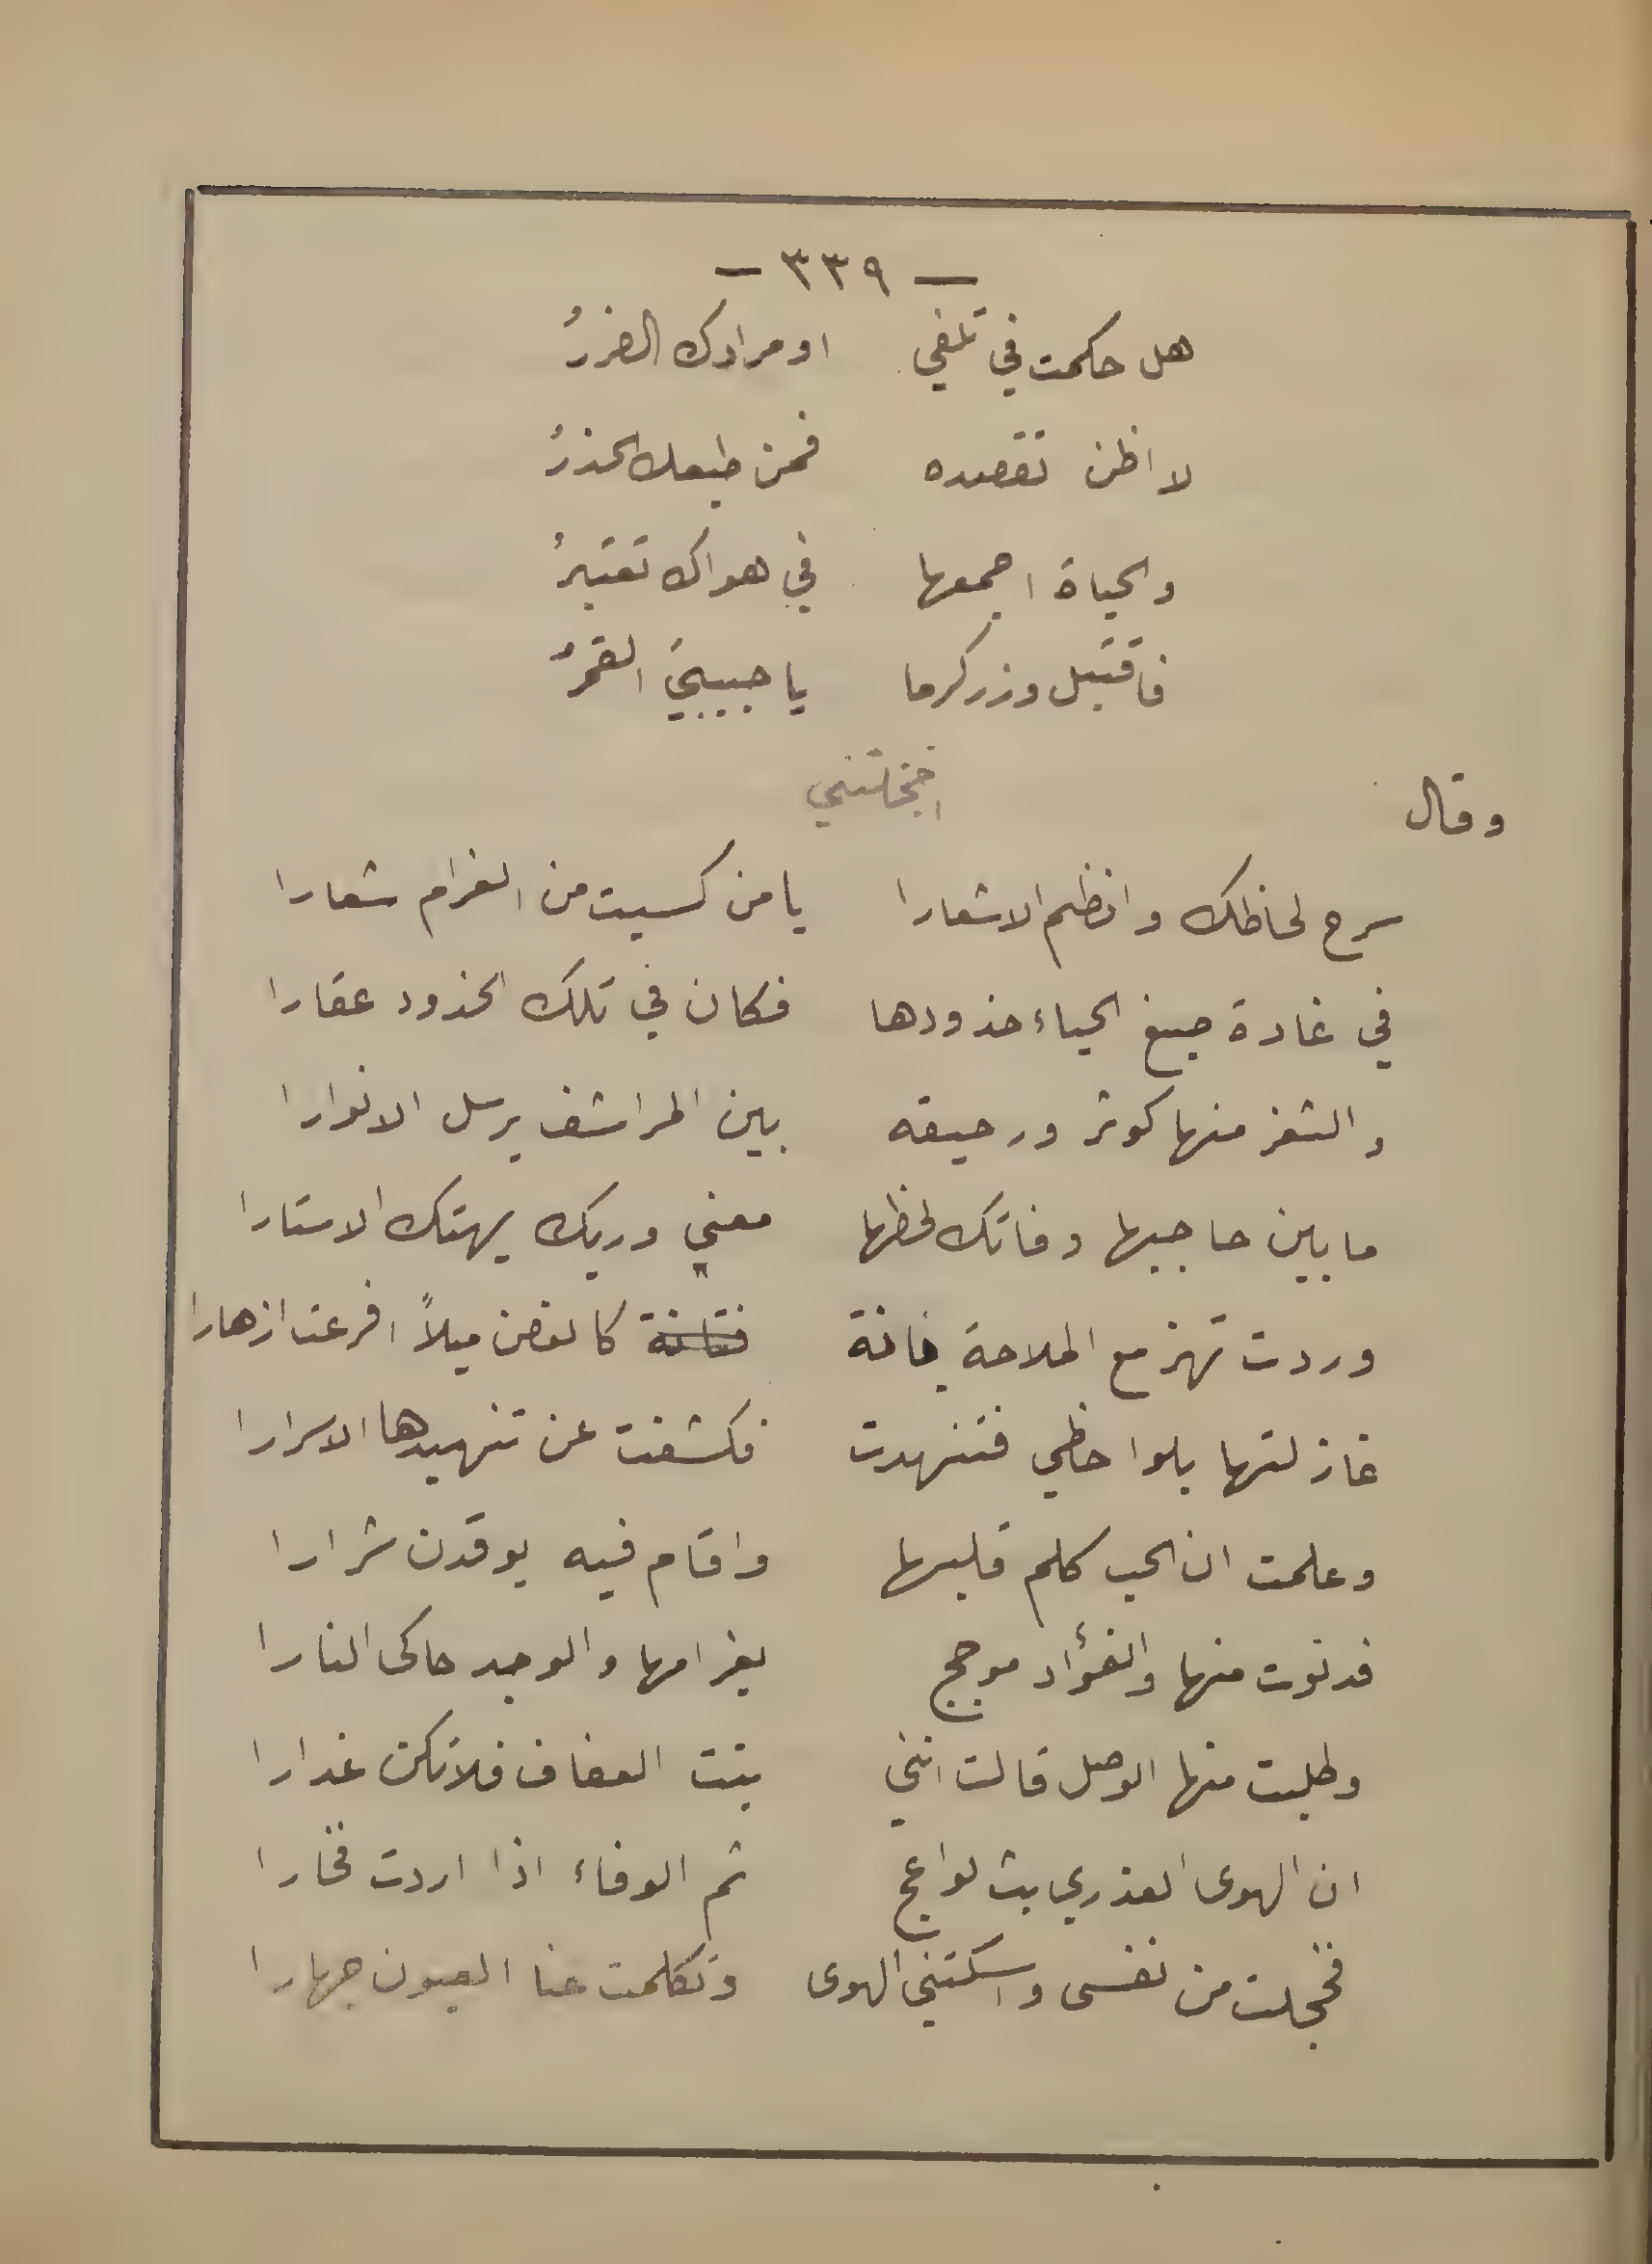 — ٣٣٩ —
هل حكمت في تلفي او مرادك الضررُ
لا اظن تقصده فمن طبعك الحذرُ
والحياة اجمعها في هواك تعتبرُ
فاقتبل وزر كرما يا حبيبيَ القمرُ
اخجلتني
وقال
سرح لحاظك وانظم الاشعارا يا من كسيت من الغرام شعارا
في غادة صبغ الحياء خدودها فكان في تلك الخدود عقارا
والثغر منها كوثر ورحيقه بين المراشف يرسل الانوارا
ما بين حاجبها وفاتك لحظها معنى وربك يهتك الاستارا
وردت تهز مع الملاحة بانة كالغصن ميلاً افرعت ازهارا
غازلتها بلواحظي فتنهدت فكشفت عن تنهيدها الاسرارا
وعلمت ان الحب كلم قلبها واقام فيه يوقدن شرارا
فدنوت منها والفؤاد موجج بغرامها والوجد حاكى النارا
وطلبت منها الوصل قالت انني بنت العفاف فلا تكن غدارا
ان الهوى العذري بث لواعج ثم الوفاء اذا اردت فخارا
فخجلت من نفسي واسكتني الهوى وتكلمت عنا العيون جهارا